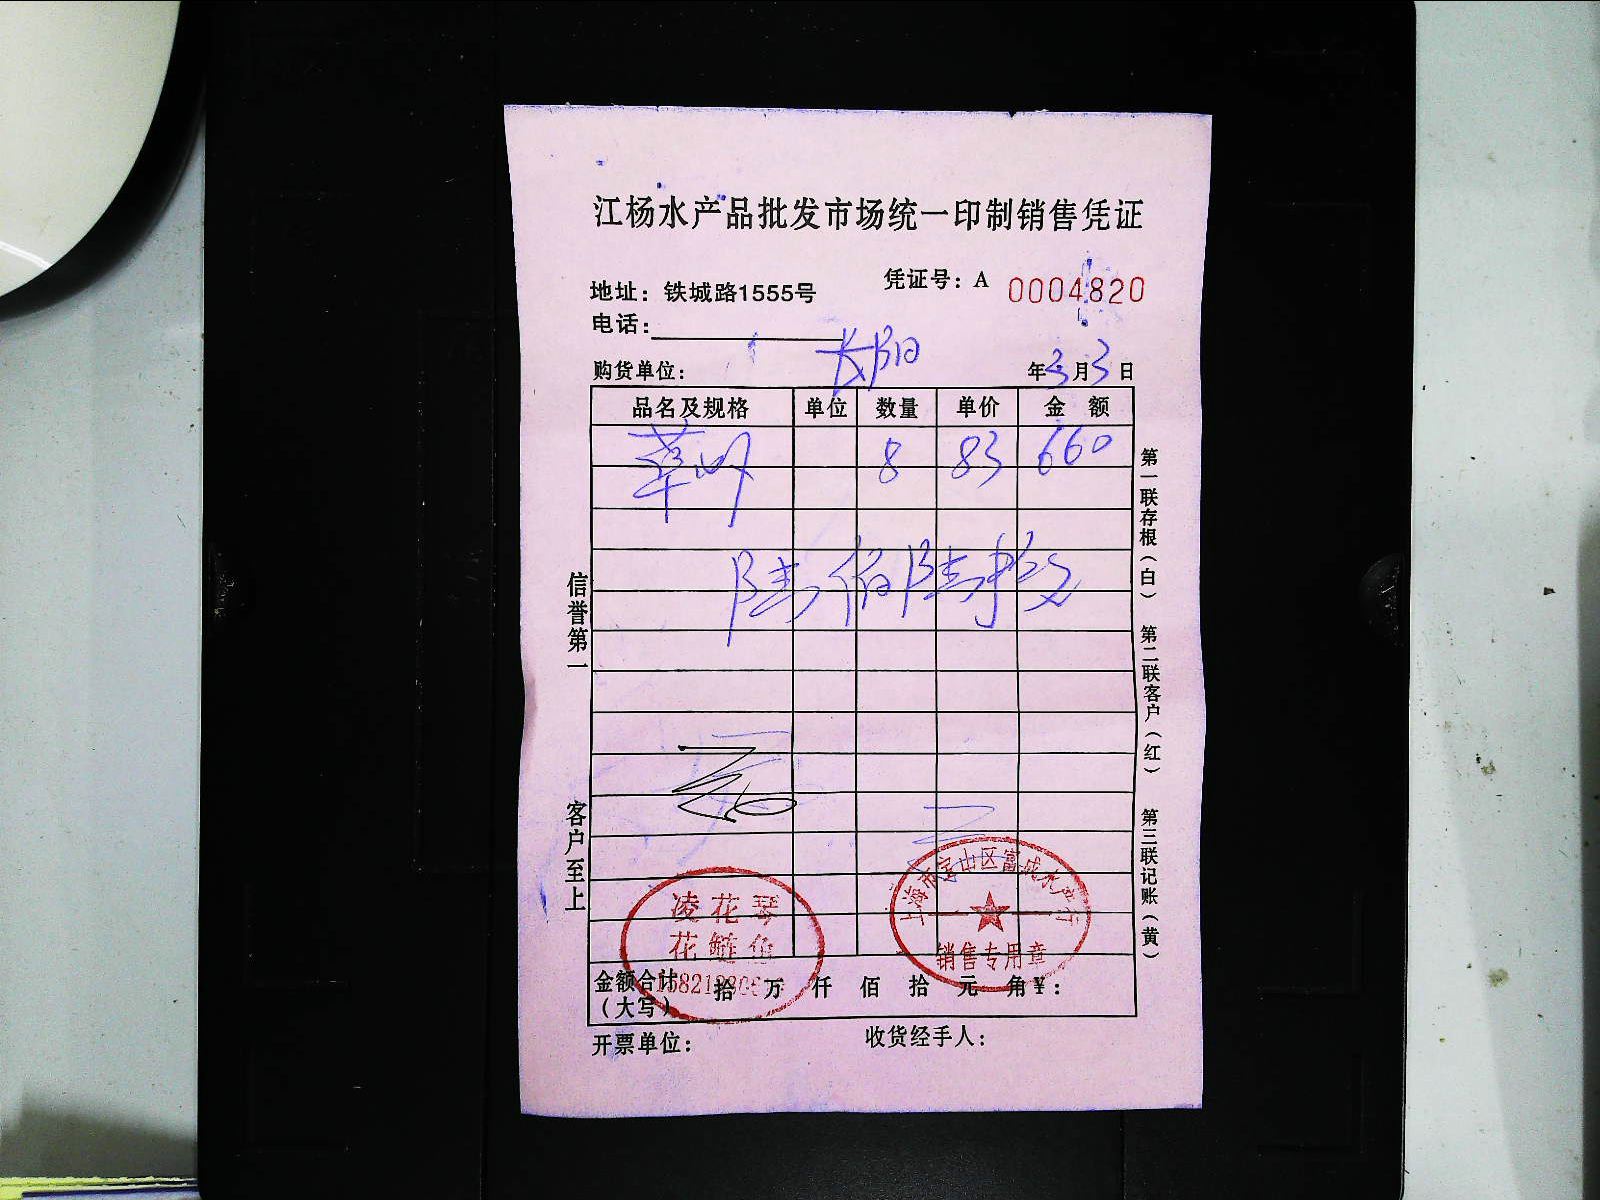 江杨水产品批发市场统一印制销售凭证
凭证号：A 0004820
地址：铁城路1555号
电话：
购货单位： 长阳 年3月3日
品名及规格 单位 数量 单价 金额
8 83 660
陆佰陆拾
信誉第一
客户至上
第一联存根（白） 第二联客户（红） 第三联记账（黄）
凌花琴
花鲢鱼
上海市宝山区富成水产行
销售专用章
金额合计（大写） 拾 万 仟 佰 拾 元 角 ¥：
开票单位： 收货经手人：